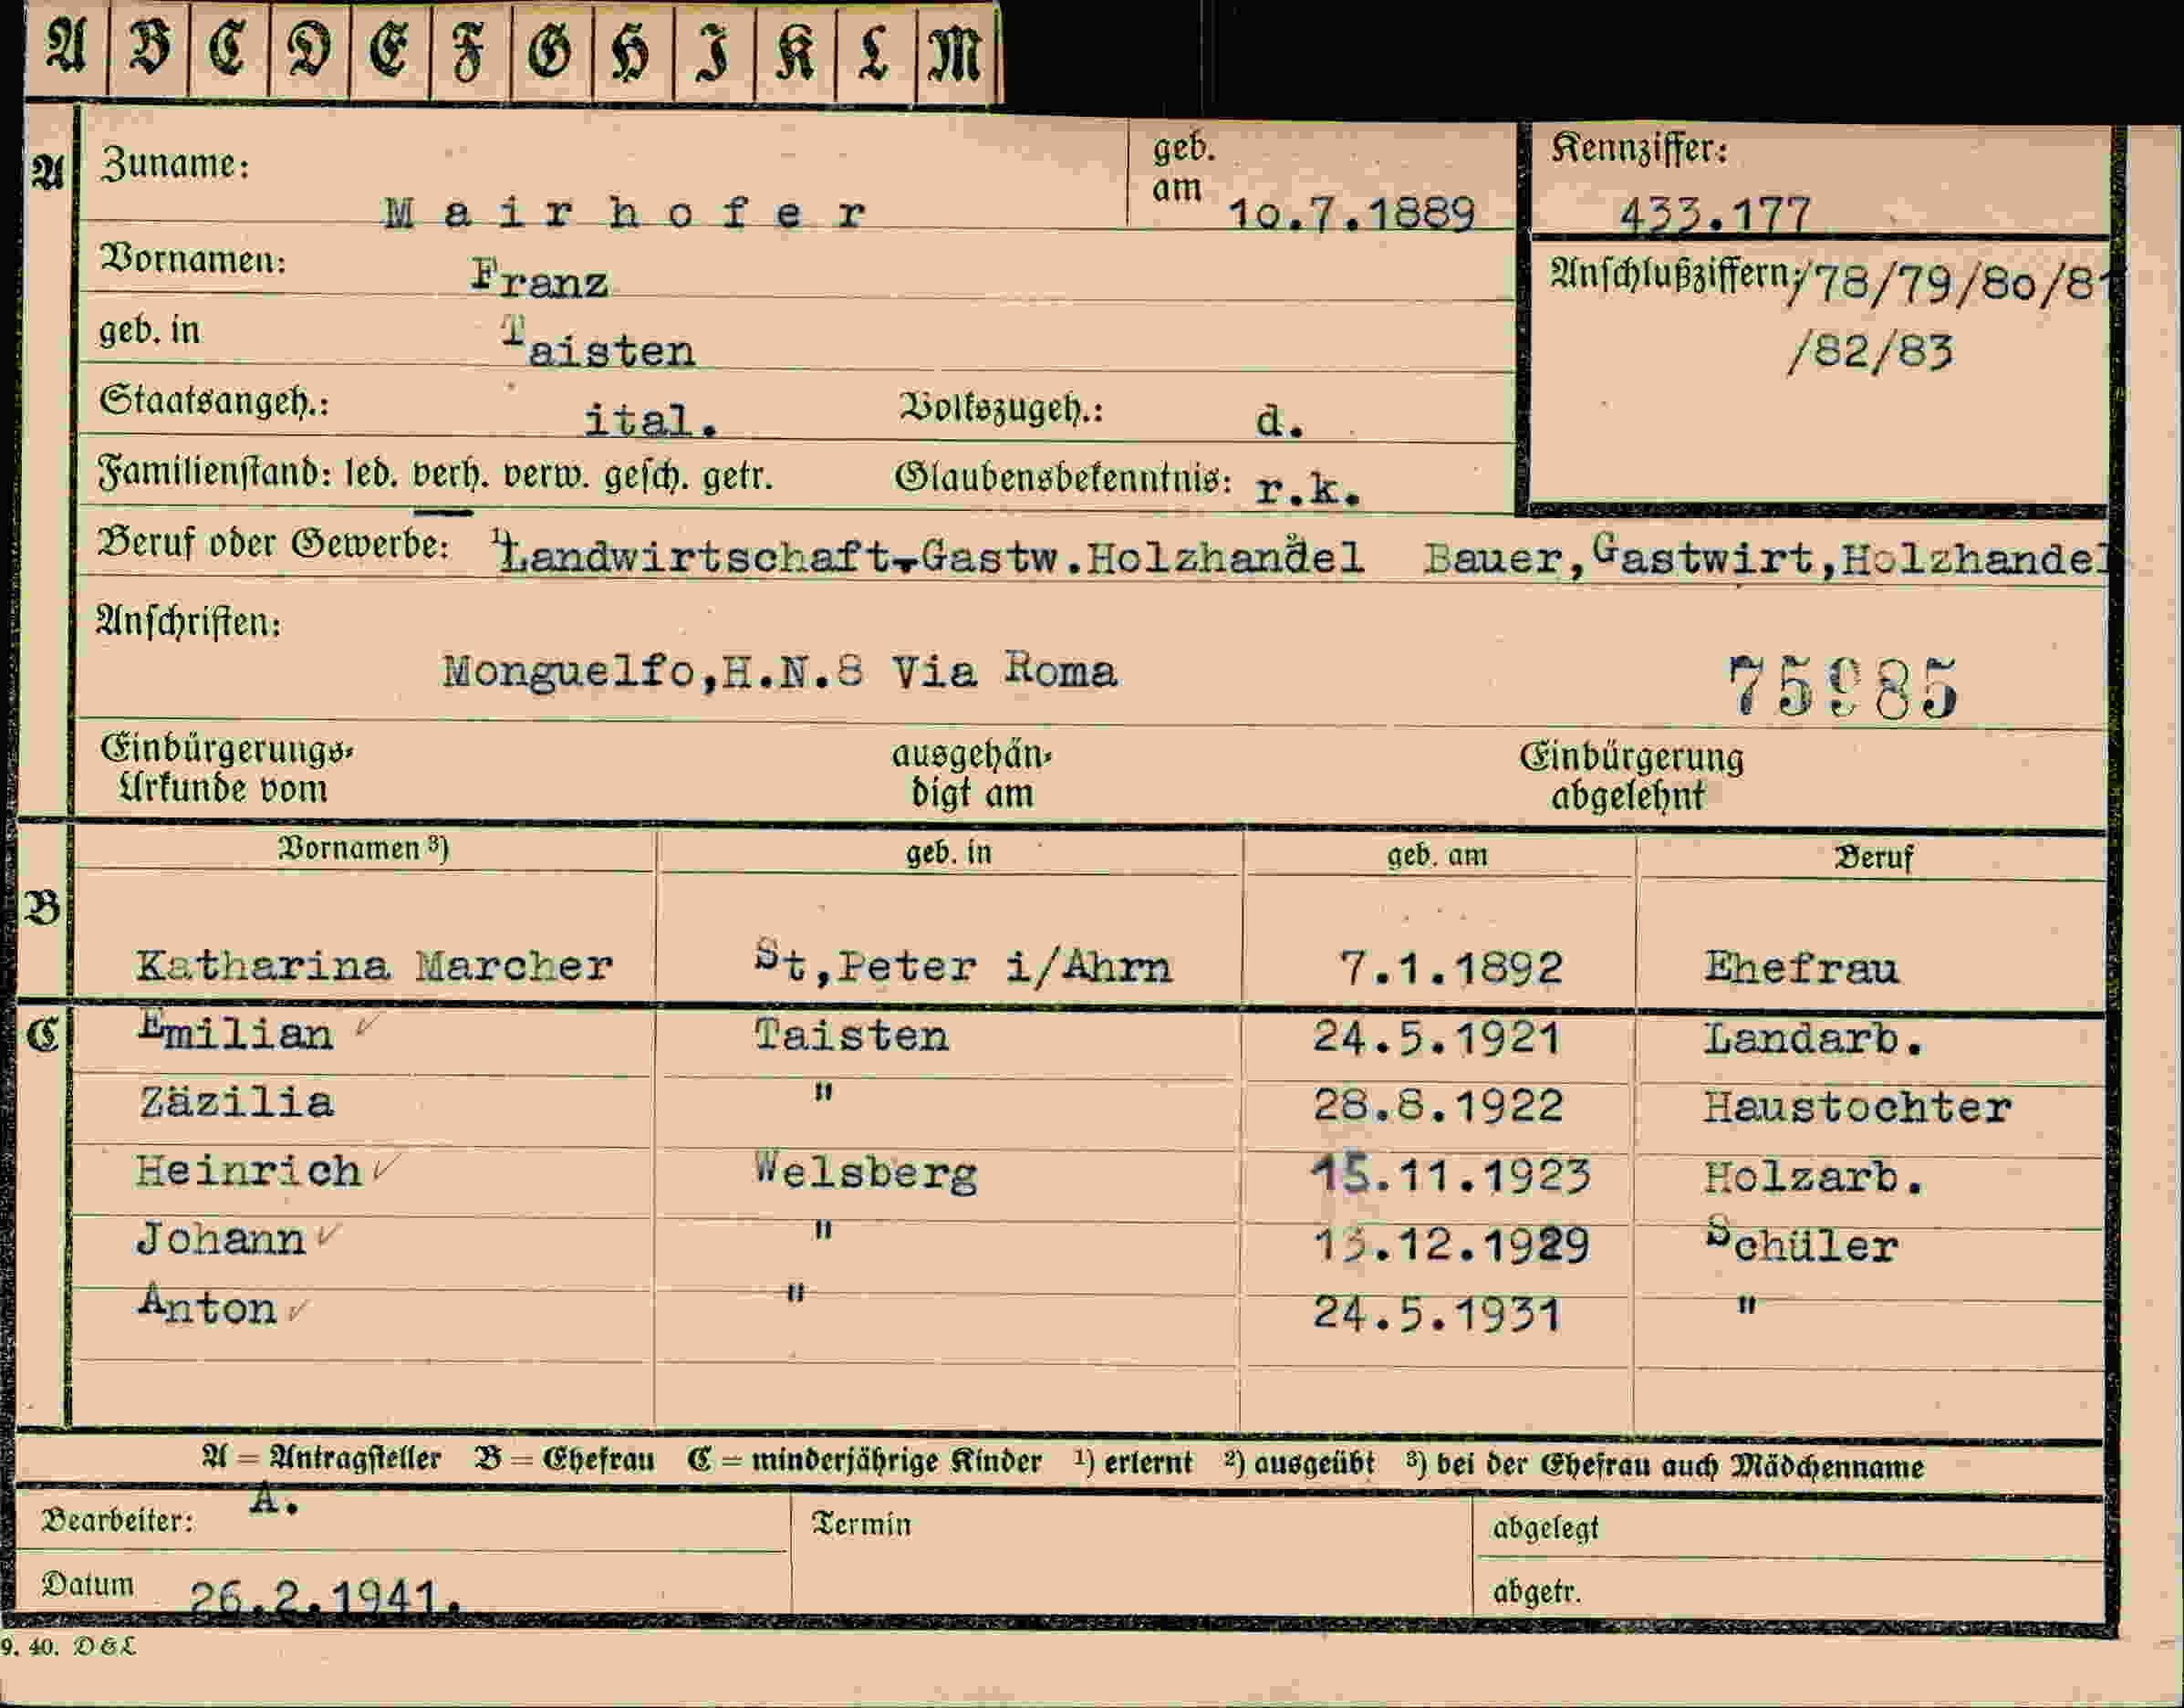 A B C D E F G H I K L M
A Zuname: Mairhofer geb. am 10.7.1889 Kennziffer: 433.177
Vornamen: Franz Anschlußziffern: /78/79/80/81
geb. in Taisten /82/83
Staatsangeh.: ital. Volkszugeh.: d.
Familienstand: led. verh. verw. gesch. getr. Glaubensbekenntnis: r.k.
Beruf oder Gewerbe: Landwirtschaft-Gastw.Holzhandel Bauer,Gastwirt,Holzhandel
Anschriften:
Monguelfo,H.N.8 Via Roma 75985
Einbürgerungs- ausgehän- Einbürgerung
Urkunde vom digt am abgelehnt
Vornamen ³) geb. in geb. am Beruf
B
Katharina Marcher St,Peter i/Ahrn 7.1.1892 Ehefrau
C Emilian ✓ Taisten 24.5.1921 Landarb.
Zäzilia " 28.8.1922 Haustochter
Heinrich ✓ Welsberg 15.11.1923 Holzarb.
Johann ✓ " 13.12.1929 Schüler
Anton ✓ " 24.5.1931 "
A = Antragsteller B = Ehefrau C = minderjährige Kinder ¹) erlernt ²) ausgeübt ³) bei der Ehefrau auch Mädchenname
Bearbeiter: A. Termin abgelegt
Datum 26.2.1941. abgetr.
9. 40. DGL